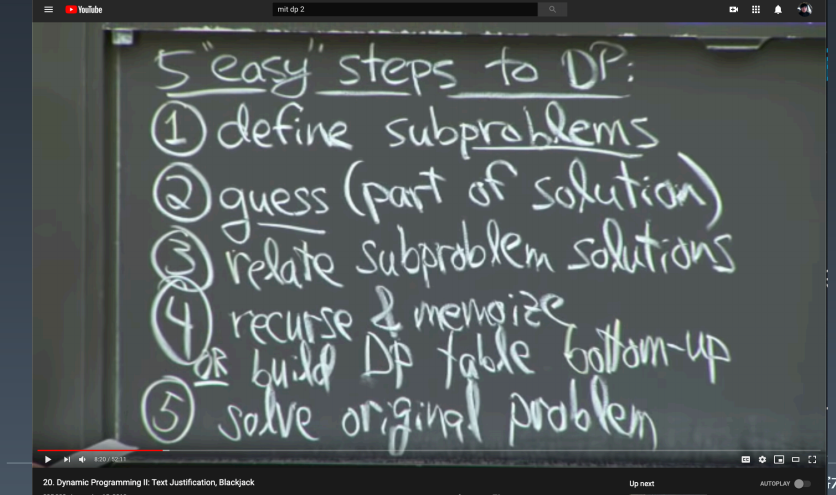 YouTube
mit dp 2
5 "easy" steps to DP:
① define subproblems
② guess (part of solution)
③ relate subproblem solutions
④ recurse & memoize
OR build DP table bottom-up
⑤ solve original problem
8:20 / 52:11
20. Dynamic Programming II: Text Justification, Blackjack
Up next
AUTOPLAY